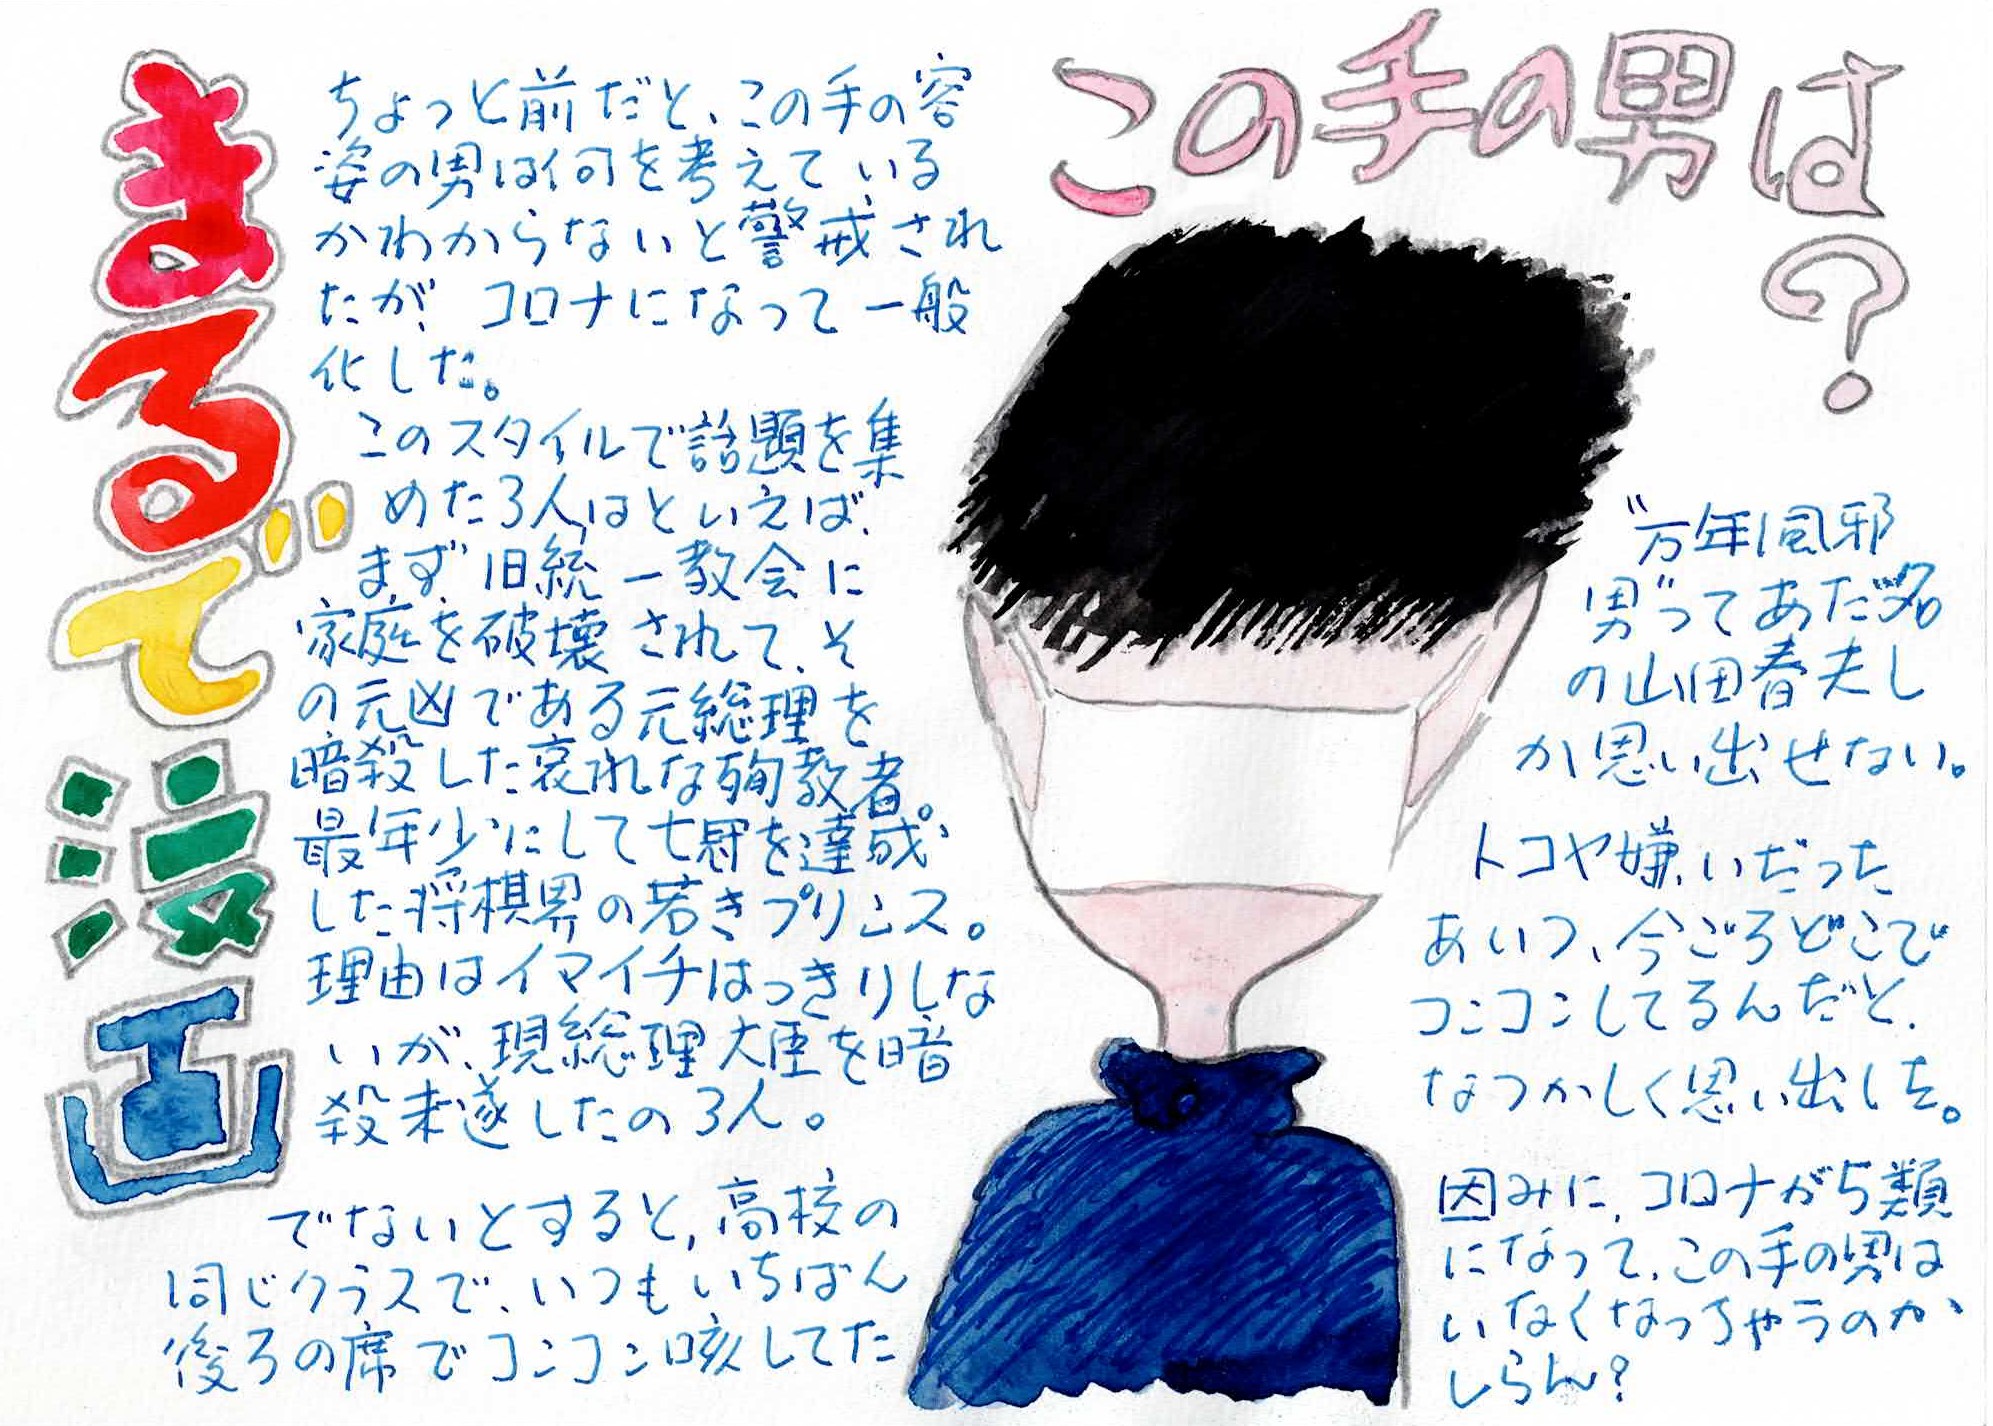 まるで漫画
この手の男は?
ちょっと前だと、この手の容
姿の男は何を考えている
かわからないと警戒され
たが、コロナになって一般
化した。
このスタイルで話題を集
めた3人はといえば、
まず、旧統一教会に
家庭を破壊されて、そ
の元凶である元総理を
暗殺した哀れな殉教者。
最年少にして七冠を達成
した将棋界の若きプリンス。
理由はイマイチはっきりしな
いが、現総理大臣を暗
殺未遂したの3人。
でないとすると、高校の
同じクラスで、いつもいちばん
後ろの席でコンコン咳してた
"万年風邪
男"ってあだ名
の山田春夫し
か思い出せない。
トコヤ嫌いだった
あいつ、今ごろどこで
コンコンしてるんだと、
なつかしく思い出した。
因みに、コロナが5類
になって、この手の男は
いなくなっちゃうのか
しらん?